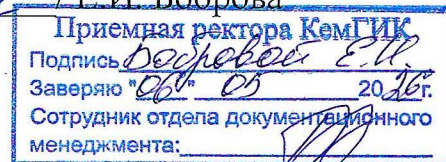 / Е. И. Боброва
Приемная ректора КемГИК
Подпись Бобровой Е.И.
Заверяю "06" 05 2026г.
Сотрудник отдела документационного
менеджмента: